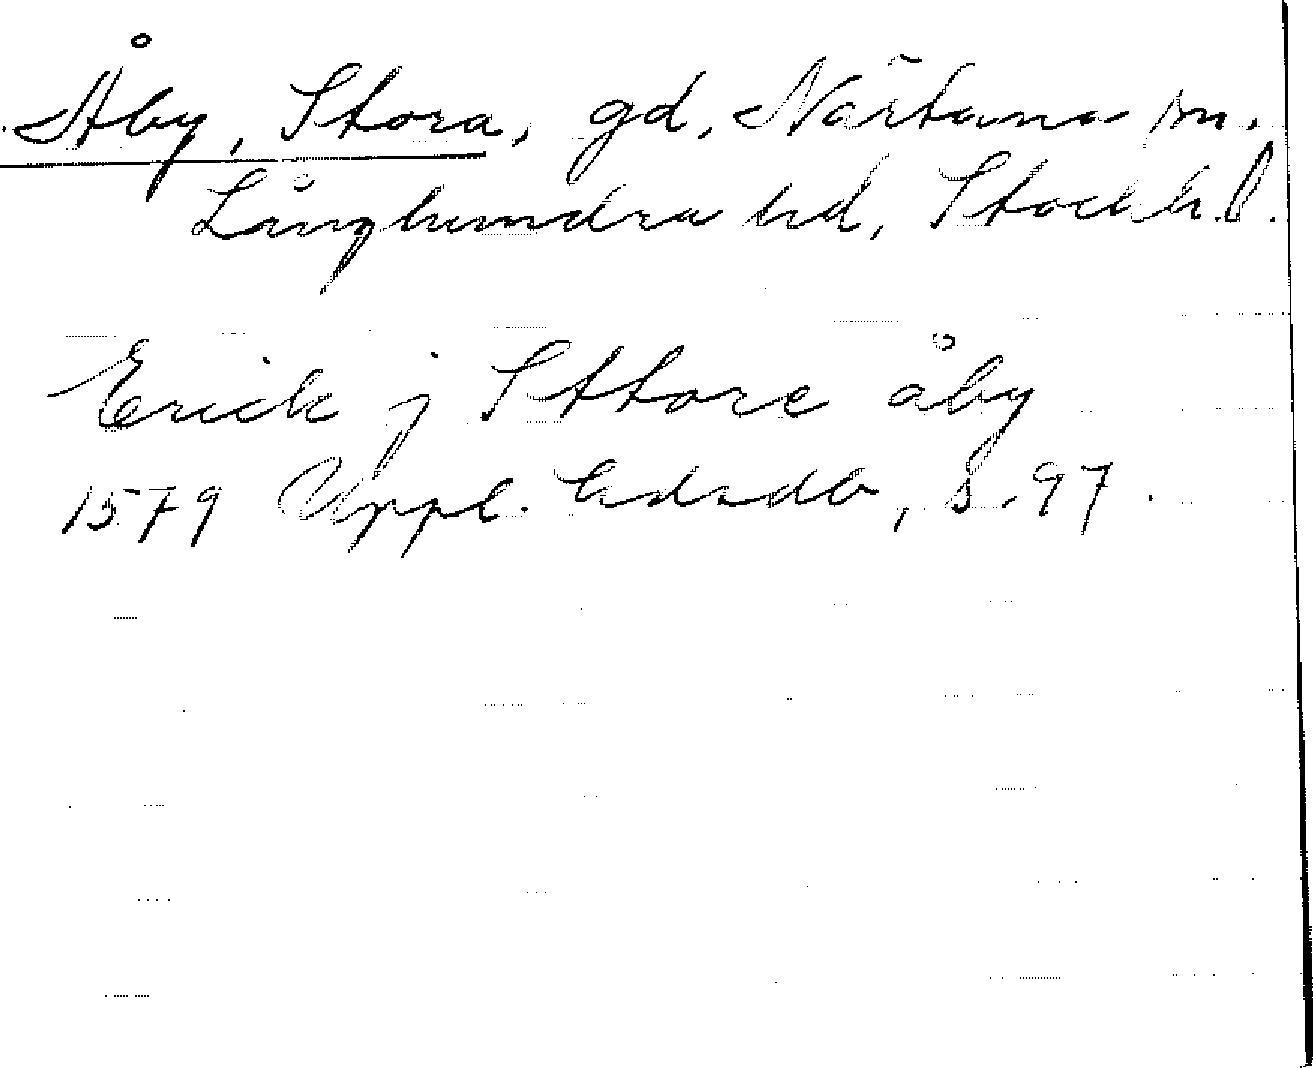 Åby, Stora, gd, Närtuna sn.
Långhundra hd, Stockh. l.
Erick j Sttore åby
1579 Uppl. hdsdb, s. 97.